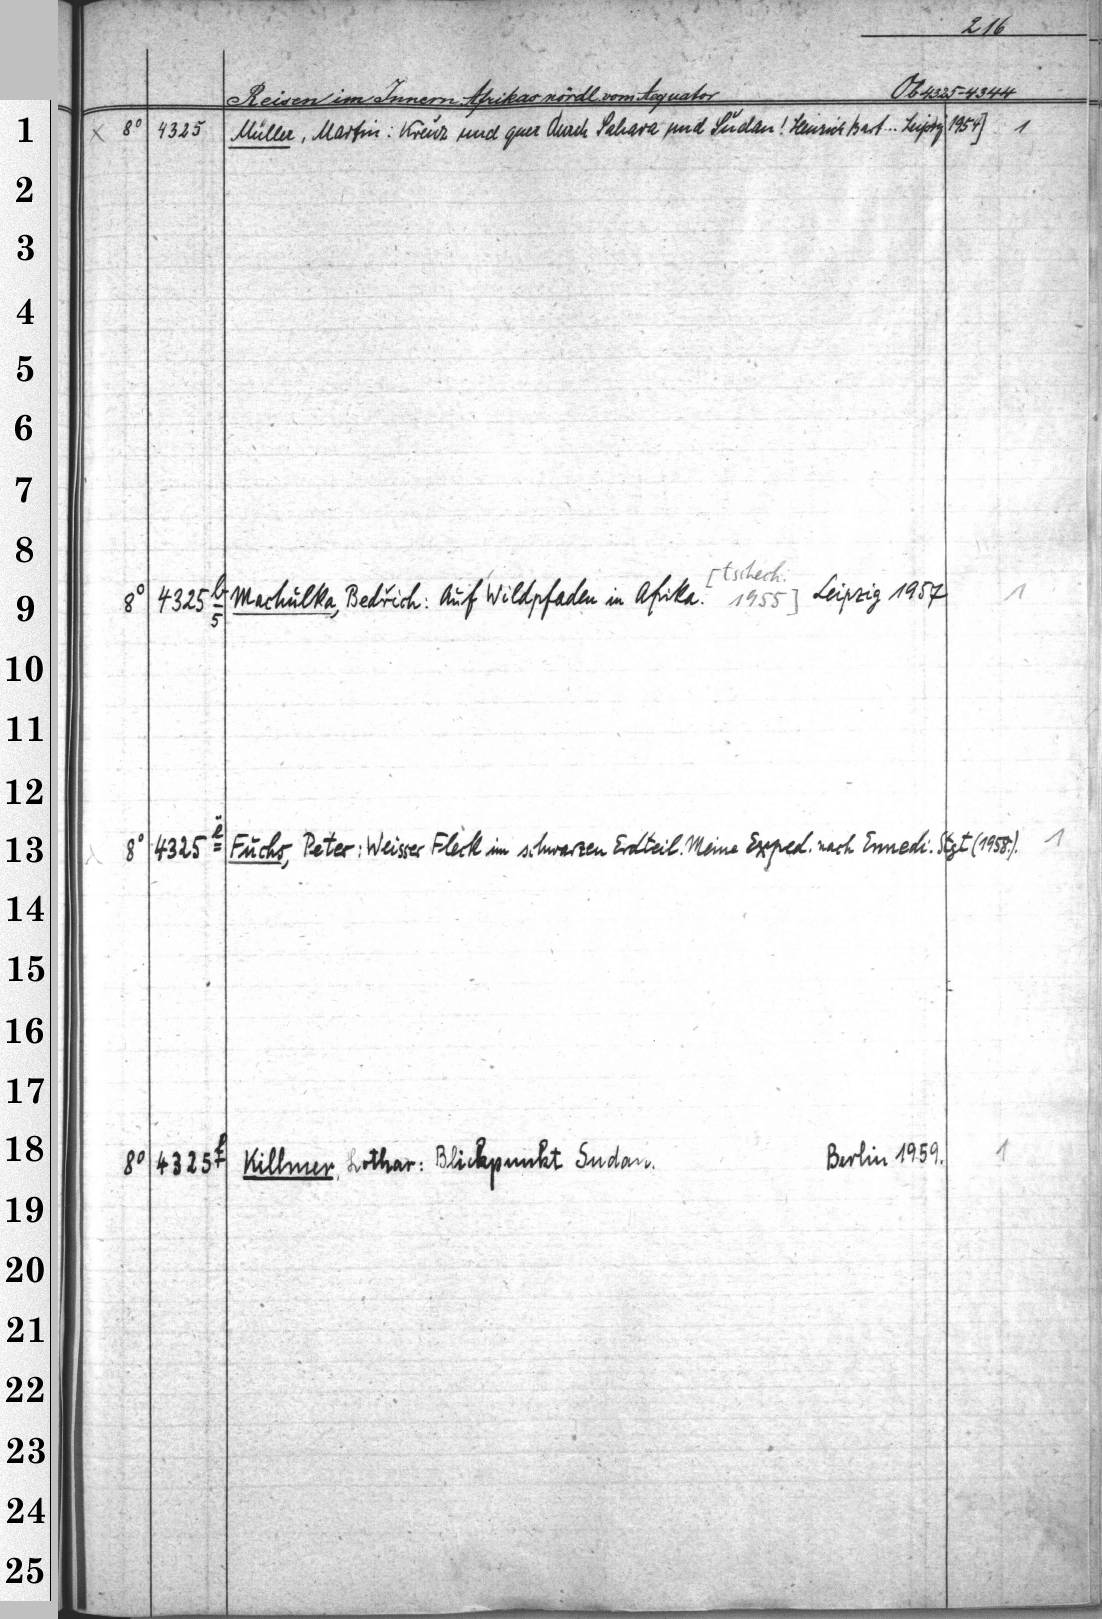 216
Reisen im Innern Afrikas nördl. vom Aequator Ob 4325-4344
1 x 8° 4325 Müller, Martin: Kreuz und quer durch Sahara und Sudan! Heinrich Bart... Leipzig [1954] 1
2
3
4
5
6
7
8
[tschech.
9 8° 4325 b/5 Machulka, Bedřich: Auf Wildpfaden in Afrika. 1955] Leipzig 1957 1
10
11
12
13 8° 4325 e Fuchs, Peter: Weisser Fleck im schwarzen Erdteil. Meine Exped. nach Ennedi. Stgt (1958). 1
14
15
16
17
18 8° 4325 f Killmer, Lothar: Blickpunkt Sudan. Berlin 1959. 1
19
20
21
22
23
24
25